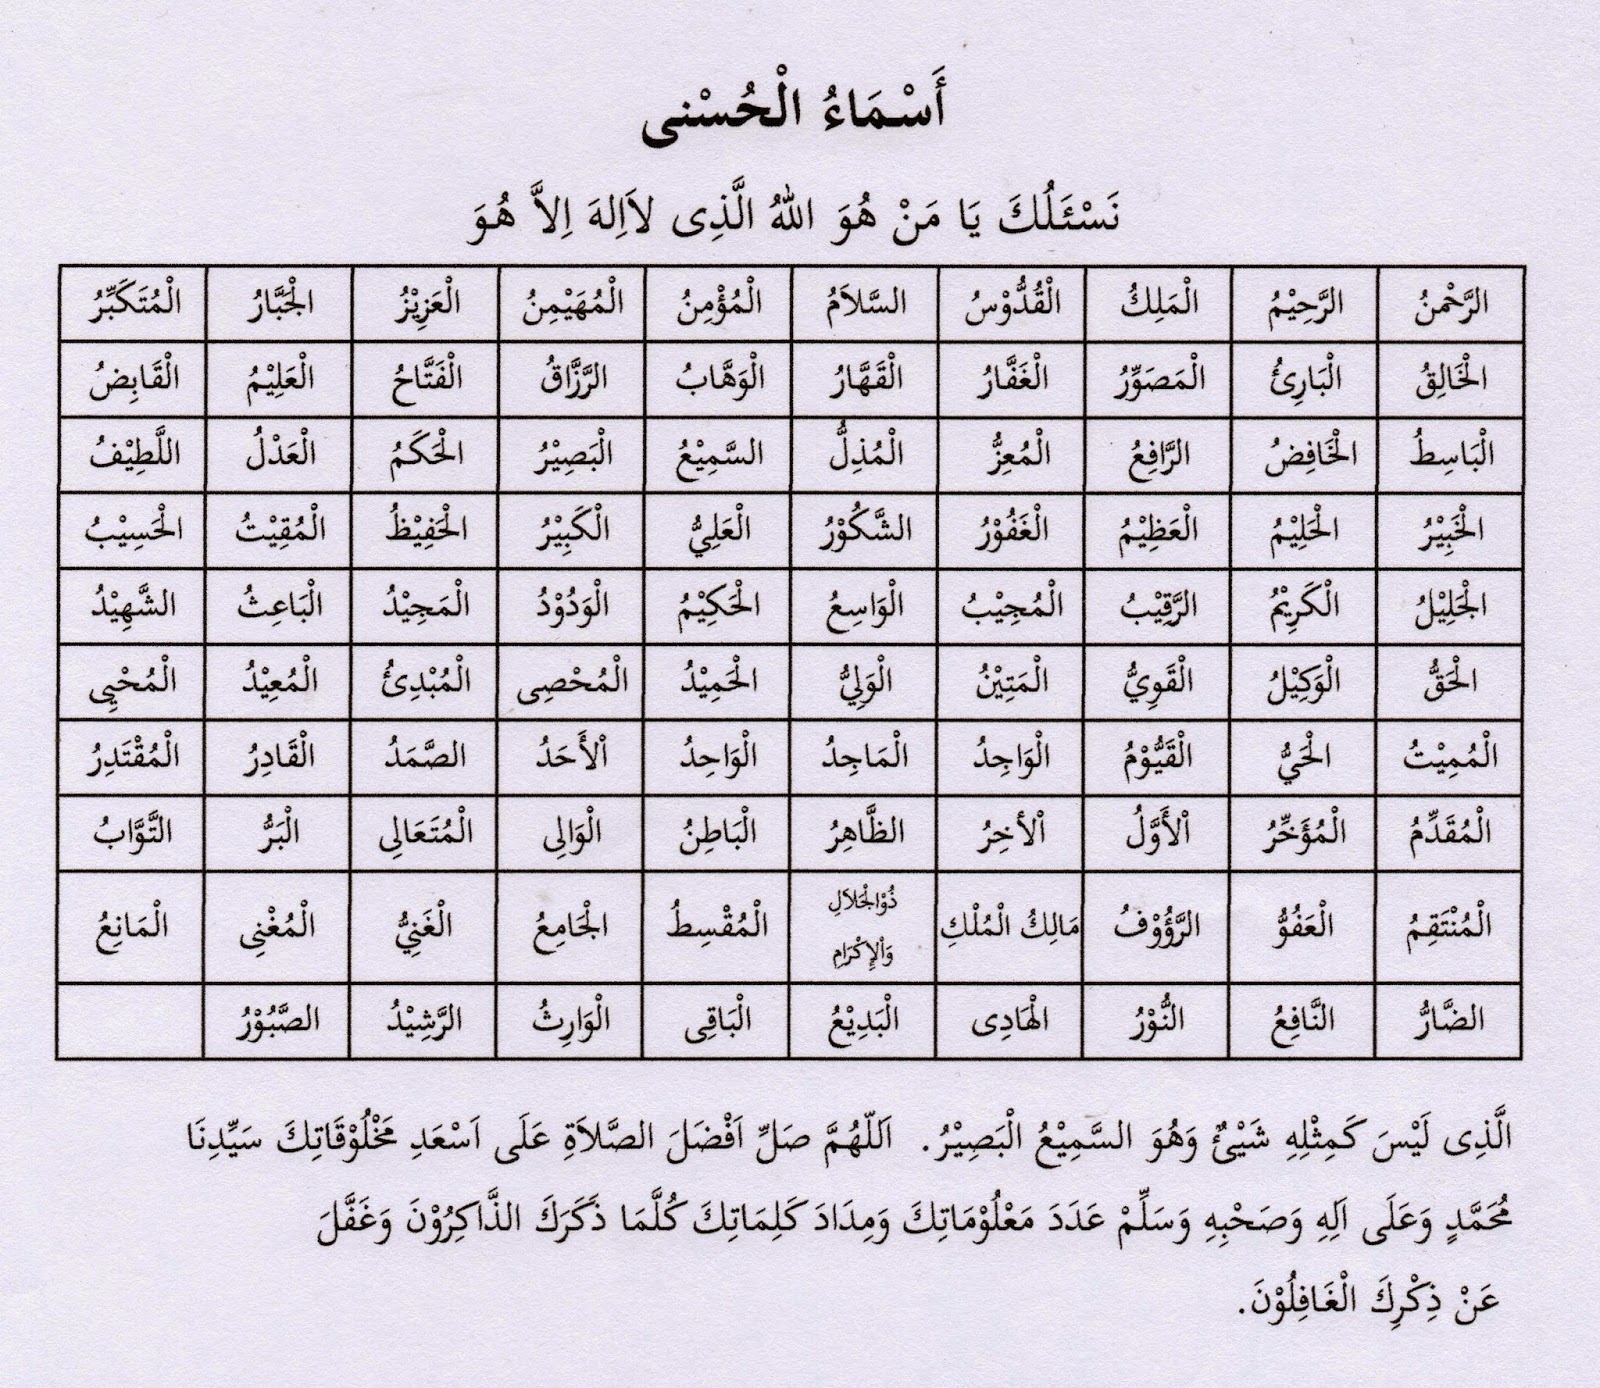 أَسْمَاءُ الْحُسْنى
نَسْئَلُكَ يَا مَنْ هُوَ اللهُ الَّذِى لاَاِلهَ اِلاَّ هُوَ
الرَّحْمنُ الرَّحِيْمُ الْمَلِكُ الْقُدُّوْسُ السَّلاَمُ الْمُؤْمِنُ الْمُهَيْمِنُ الْعَزِيْزُ الْجَبَّارُ الْمُتَكَبِّرُ
الْخَالِقُ الْبَارِئُ الْمَصَوِّرُ الْغَفَّارُ الْقَهَّارُ الْوَهَّابُ الرَّزَّاقُ الْفَتَّاحُ الْعَلِيْمُ الْقَابِضُ
الْبَاسِطُ الْخَافِضُ الرَّافِعُ الْمُعِزُّ الْمُذِلُّ السَّمِيْعُ الْبَصِيْرُ الْحَكَمُ الْعَدْلُ اللَّطِيْفُ
الْخَبِيْرُ الْحَلِيْمُ الْعَظِيْمُ الْغَفُوْرُ الشَّكُوْرُ الْعَلِيُّ الْكَبِيْرُ الْحَفِيْظُ الْمُقِيْتُ الْحَسِيْبُ
الْجَلِيْلُ الْكَرِيْمُ الرَّقِيْبُ الْمُجِيْبُ الْوَاسِعُ الْحَكِيْمُ الْوَدُوْدُ الْمَجِيْدُ الْبَاعِثُ الشَّهِيْدُ
الْحَقُّ الْوَكِيْلُ الْقَوِيُّ الْمَتِيْنُ الْوَلِيُّ الْحَمِيْدُ الْمُحْصِى الْمُبْدِئُ الْمُعِيْدُ الْمُحْيِى
الْمُمِيْتُ الْحَيُّ الْقَيُّوْمُ الْوَاجِدُ الْمَاجِدُ الْوَاحِدُ اْلأَحَدُ الصَّمَدُ الْقَادِرُ الْمُقْتَدِرُ
الْمُقَدِّمُ الْمُؤَخِّرُ اْلأَوَّلُ اْلأخِرُ الظَّاهِرُ الْبَاطِنُ الْوَالِى الْمُتَعَالِى الْبَرُّ التَّوَّابُ
الْمُنْتَقِمُ الْعَفُوُّ الرَّؤُوْفُ مَالِكُ الْمُلْكِ ذُوْالْجَلاَلِ وَاْلإِكْرَامِ الْمُقْسِطُ الْجَامِعُ الْغَنِيُّ الْمُغْنِى الْمَانِعُ
الضَّارُّ النَّافِعُ النُّوْرُ الْهَادِى الْبَدِيْعُ الْبَاقِى الْوَارِثُ الرَّشِيْدُ الصَّبُوْرُ
الَّذِى لَيْسَ كَمِثْلِهِ شَيْئٌ وَهُوَ السَّمِيْعُ الْبَصِيْرُ. اَللّهُمَّ صَلِّ اَفْضَلَ الصَّلاَةِ عَلَى اَسْعَدِ مَخْلُوْقَاتِكَ سَيِّدِنَا
مُحَمَّدٍ وَعَلَى اَلِهِ وَصَحْبِهِ وَسَلِّمْ عَدَدَ مَعْلُوْمَاتِكَ وَمِدَادَ كَلِمَاتِكَ كُلَّمَا ذَكَرَكَ الذَّاكِرُوْنَ وَغَفَّلَ
عَنْ ذِكْرِكَ الْغَافِلُوْنَ.